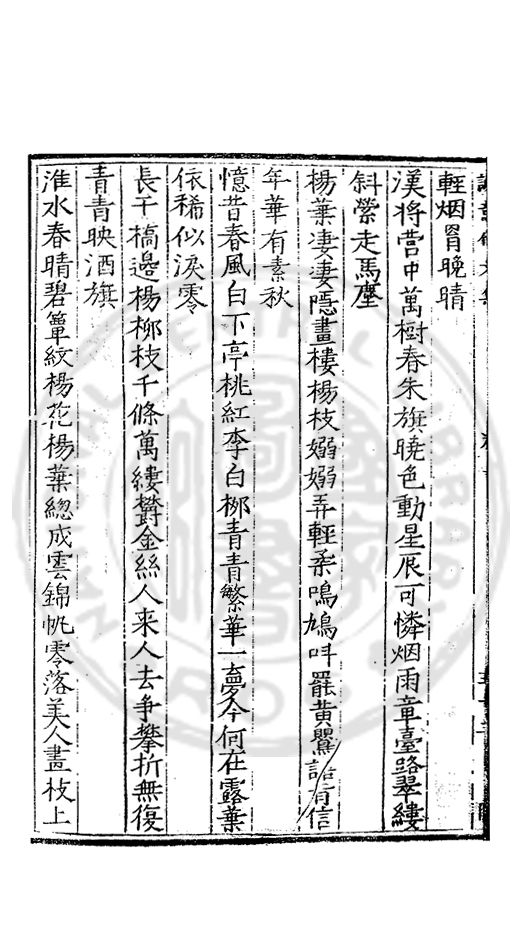 輕烟罥晚晴
漢將營中萬樹春朱旗曉色動星辰可憐烟雨章臺路翠縷
斜縈走馬塵
楊葉凄凄隱畫樓楊枝嫋嫋弄輕柔鳴鳩呌罷黃鸝語有信
年華有素秋
憶昔春風白下亭桃紅李白栁青青繁華一夢今何在露葉
依稀似淚零
長干橋邊楊栁枝千條萬縷欝金絲人来人去争攀折無復
青青映酒旗
淮水春晴碧簟紋楊花楊葉總成雲錦帆零落美人畫枝上